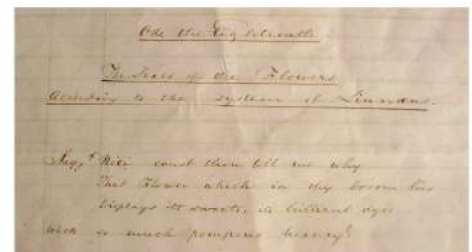 Ode the Eighteenth.
The Sexes of the Flowers
According to the system of Linnæus.
Nice, canst thou tell me why
That Flower which in thy bosom lies
Displays its sweets, its brilliant dyes
With so much pompous bravery?